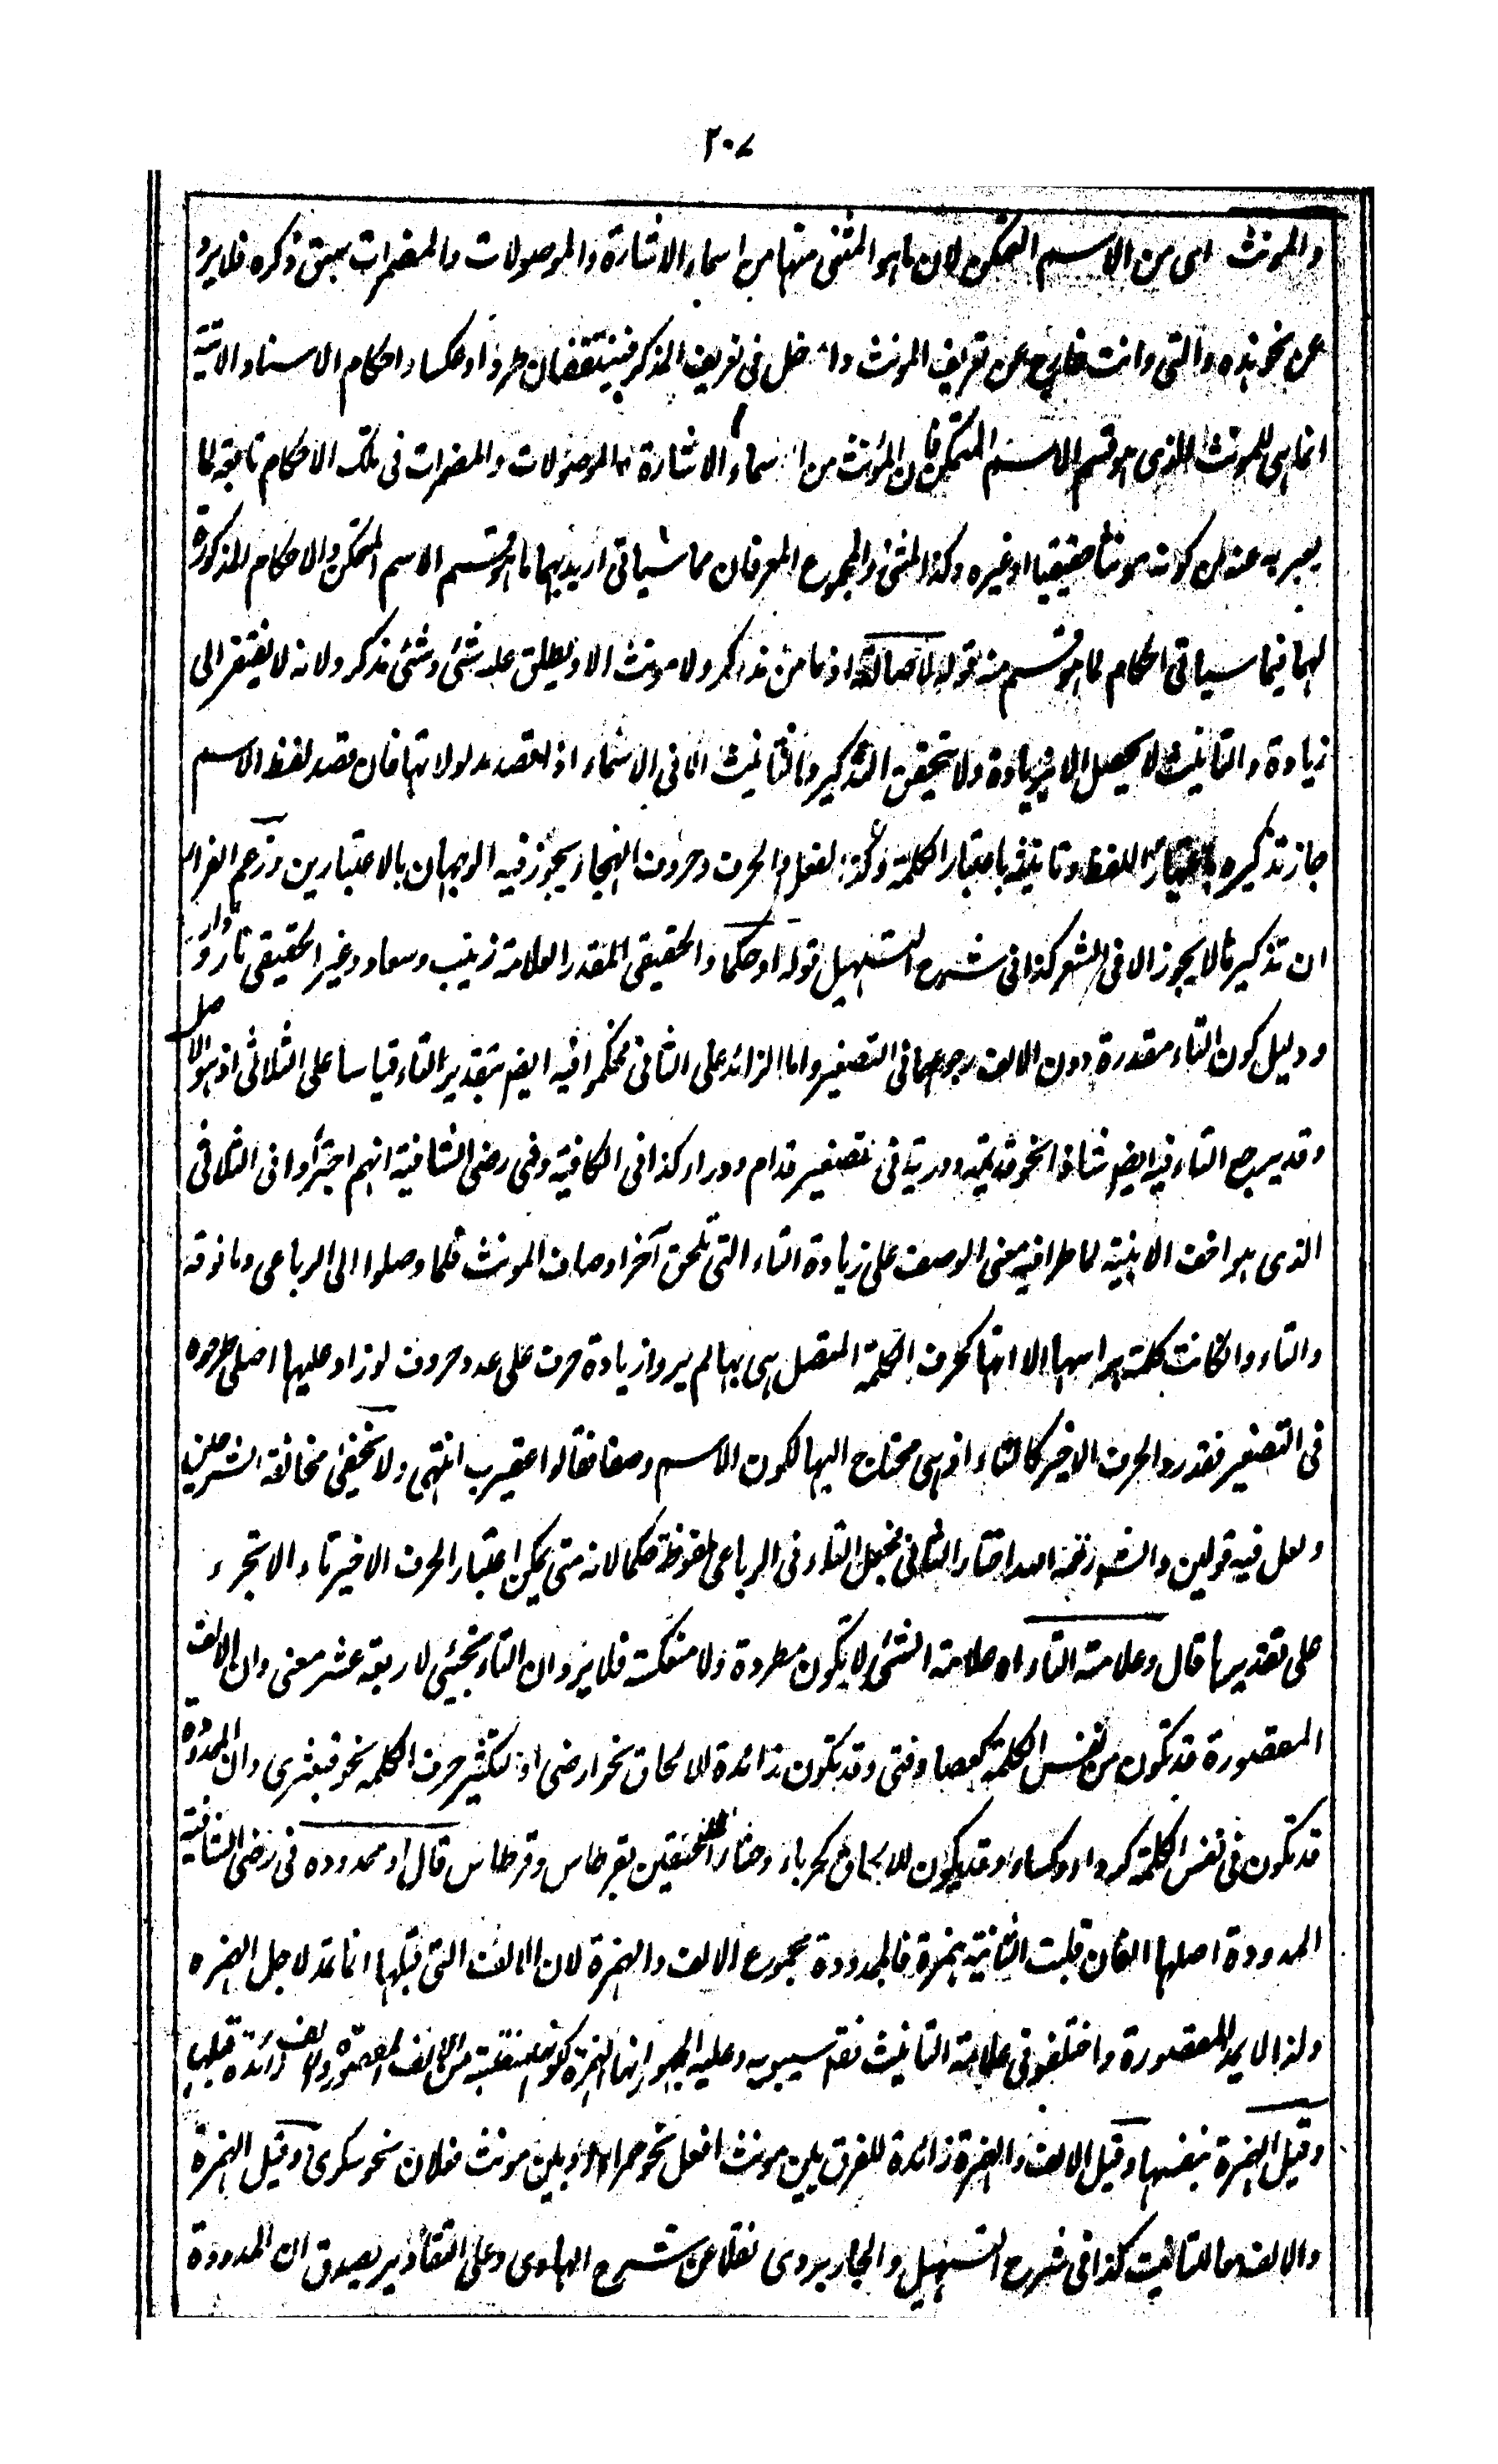 ٢٠٧
والمونث اى من الاسم المتمكن لان ما هو المثنى منها من اسماء الاشارة والموصولات والمضمرات سبق ذكره فلا يرد
عن نحو هذه والتى وانت خارج عن تعريف المونث داخل فى تعريف المذكر فينتقضان طردا وعكسا واحكام الاسناد الاتية
انما هى للمونث الذى هو قسم الاسم المتمكن فان المؤنث من اسماء الاشارة والموصولات والمضمرات فى تلك الاحكام تابعة لما
يعبر به عنه من كونه مونثا حقيقيا او غيره وكذا المثنى والمجموع المعرفان مما سياتى اريد بهما ما هو قسم الاسم المتمكن والاحكام المذكورة
لهما فيما سياتى احكام لما هو قسم منه قوله لاصالة اذ ما من مذكر ولا مونث الا ويطلق عليه شئ وشئ مذكر ولانه لا يفتقر الى
زيادة والتانيث لا يحصل الا بزيادة ولا يتحقق التذكير والتانيث الا فى الاسماء اذا قصد مدلولاتها فان قصد لفظ الاسم
جاز تذكيره باعتبار اللفظ وتانيثه باعتبار الكلمة وكذا الفعل والحرف وحروف الهجاء يجوز فيه الوجهان بالاعتبارين وزعم الفراء
ان تذكيرها لا يجوز الا فى الشعر كذا فى شرح التسهيل قوله او حكما والحقيقى المقدر العلامة زينب وسعاد وغير الحقيقى نار ودار
ودليل كون التاء مقدرة دون الالف رجوعها فى التصغير واما الزائد على الثلاثى فحكموا فيه ايضم بتقدير التاء قياسا على الثلاثى اذ هو الاصل
وقد يرجع التاء فيه ايضم شاذا نحو قديمة ووريئة فى تصغير قدام ووراء كذا فى الكافية وفى رضى الشافية انهم اجترأوا فى الثلاثى
الذى هو اخف الابنية لما طرا فيه معنى الوصف على زيادة التاء التى تلحق آخر اوصاف المونث فلما وصلوا الى الرباعى وما فوقه
والتاء وانكانت كلمة براسها الا انها كحرف الكلمة المتصل هى بها لم يروا زيادة حرف على عدد حروف لو زاد عليها اصلى طرحوه
فى التصغير فقدروا الحرف الاخير كالتاء اذ هى محتاج اليها لكون الاسم وصفا فقالوا عقيرب انتهى ولا يخفى مخالفة الشرحين
ولعل فيه قولين والشم رحمه الله اختار الثانى فجعل التاء فى الرباعى ملفوظة حكما لانه متى يمكن اعتبار الحرف الاخير تاء لا يتجرء
على تقديرها قال وعلامة التاء اه علامة الشئ لا يكون مطردة ولا منعكسة فلا يرد ان التاء تجيئ لاربعة عشر معنى وان الالف
المقصورة قد تكون من نفس الكلمة كعصا وفتى وقد تكون زائدة لالحاق نحو ارضى او لتكثير حرف الكلمه نحو قبعثرى وان الممدودة
قد تكون فى نفس الكلمة كرداء وكساء وقد يكون للالحاق كحرباء وخشاء الملحقين بقرطاس وقرطاس قال او ممدوده فى رضى الشافية
الممدودة اصلها الفان قلبت الثانية همزة فالممدودة مجموع الالف والهمزة لان الالف التى قبلها انما تمد لاجل الهمزه
ولذا لا يمد المقصورة واختلفوا فى علامة التانيث فقم سيبويه وعليه الجمهور انها الهمزة كونها منقلبة من الالف المقصورة والالف زائدة قبلها
وقيل الهمزة بنفسها وقيل الالف والهمزة زائدة للفرق بين مونث افعل نحو حمراء وبين مونث فعلان نحو سكرى وقيل الهمزة
والالف معا للتانيث كذا فى شرح التسهيل والجاربردى نقلا عن شرح الهادى وعلى التقادير يصدق ان الممدودة